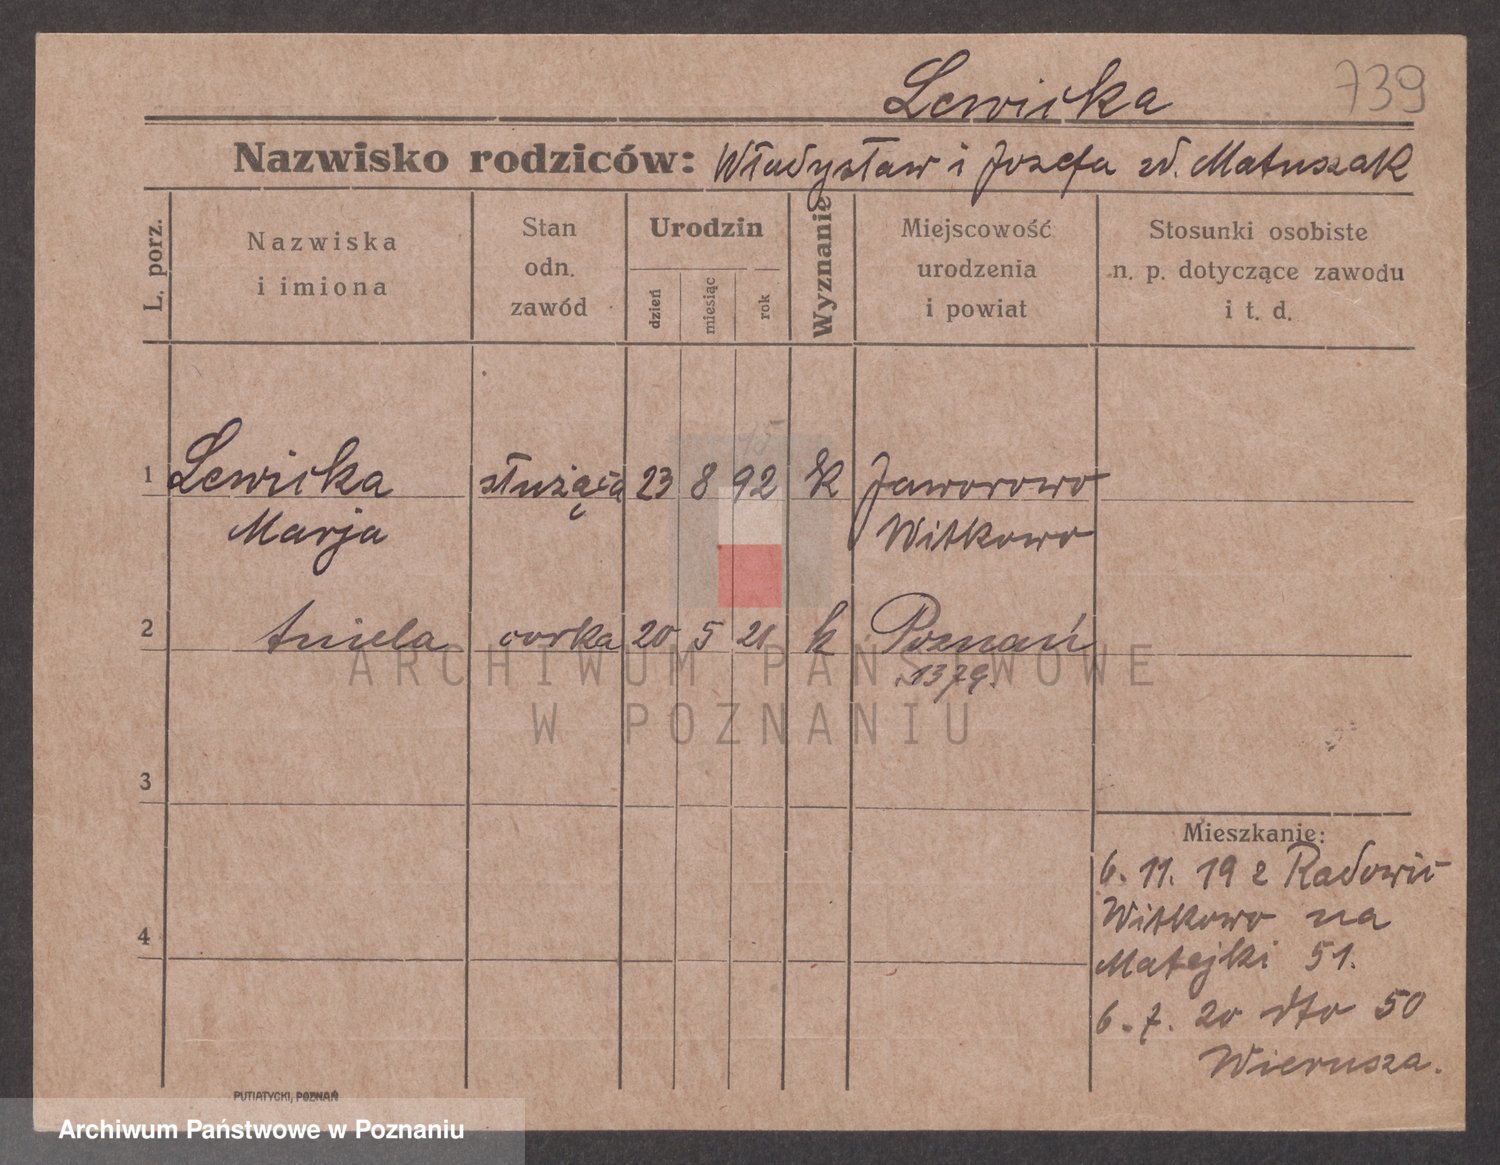 Lewicka 739
Nazwisko rodziców: Władysław i Jozefa zd. Matuszak
L. porz.
Nazwiska
i imiona
Stan
odn.
zawód
Urodzin
dzień
miesiąc
rok
Wyznanie
Miejscowość
urodzenia
i powiat
Stosunki osobiste
n. p. dotyczące zawodu
i t. d.
15
1 Lewicka służąca 23 8 92 k Jaworowo
Marja Witkowo
2 Aniela corka 20 5 21 k Poznań
1379.
ARCHIWUM PAŃSTWOWE
W POZNANIU
3
4
Mieszkanie:
6. 11. 19 z Radowic
Witkowo na
Matejki 51.
6. 7. 20 dto 50
Wierusza.
PUTIATYCKI, POZNAŃ
Archiwum Państwowe w Poznaniu